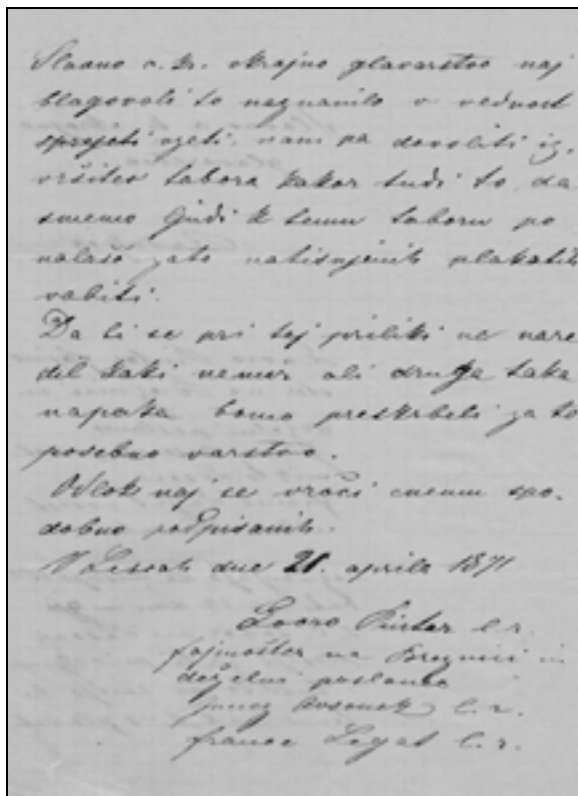 Slavno c. kr. okrajno glavarstvo naj
blagovoli to naznanilo v vednost
sprejeti vzeti, nam pa dovoliti iz-
vršitev tabora kakor tudi to, da
smemo ljudi k temu taboru po
nalašč zato natisnjenih plakatih
vabiti.
Da bi se pri tej priliki ne nare
dil kaki nemir ali druga taka
napaka bomo preskrbeli za to
posebno varstvo.
Odlok naj se vroči enemu spo-
dobno podpisanih.
V Lescah dne 21. aprila 1871
Lovro Pintar l. r.
fajmošter na Breznici in
deželni poslanec
Janez l. r.
France Legat l. r.